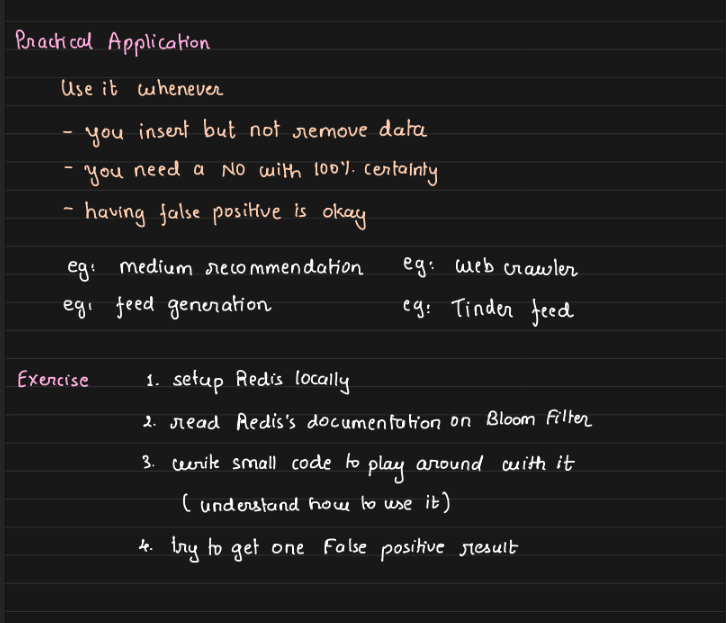 Practical Application
Use it whenever
- you insert but not remove data
- you need a NO with 100% certainty
- having false positive is okay
eg: medium recommendation eg: web crawler
eg: feed generation eg: Tinder feed
Exercise 1. setup Redis locally
2. read Redis's documentation on Bloom Filter
3. write small code to play around with it
(understand how to use it)
4. try to get one False positive result